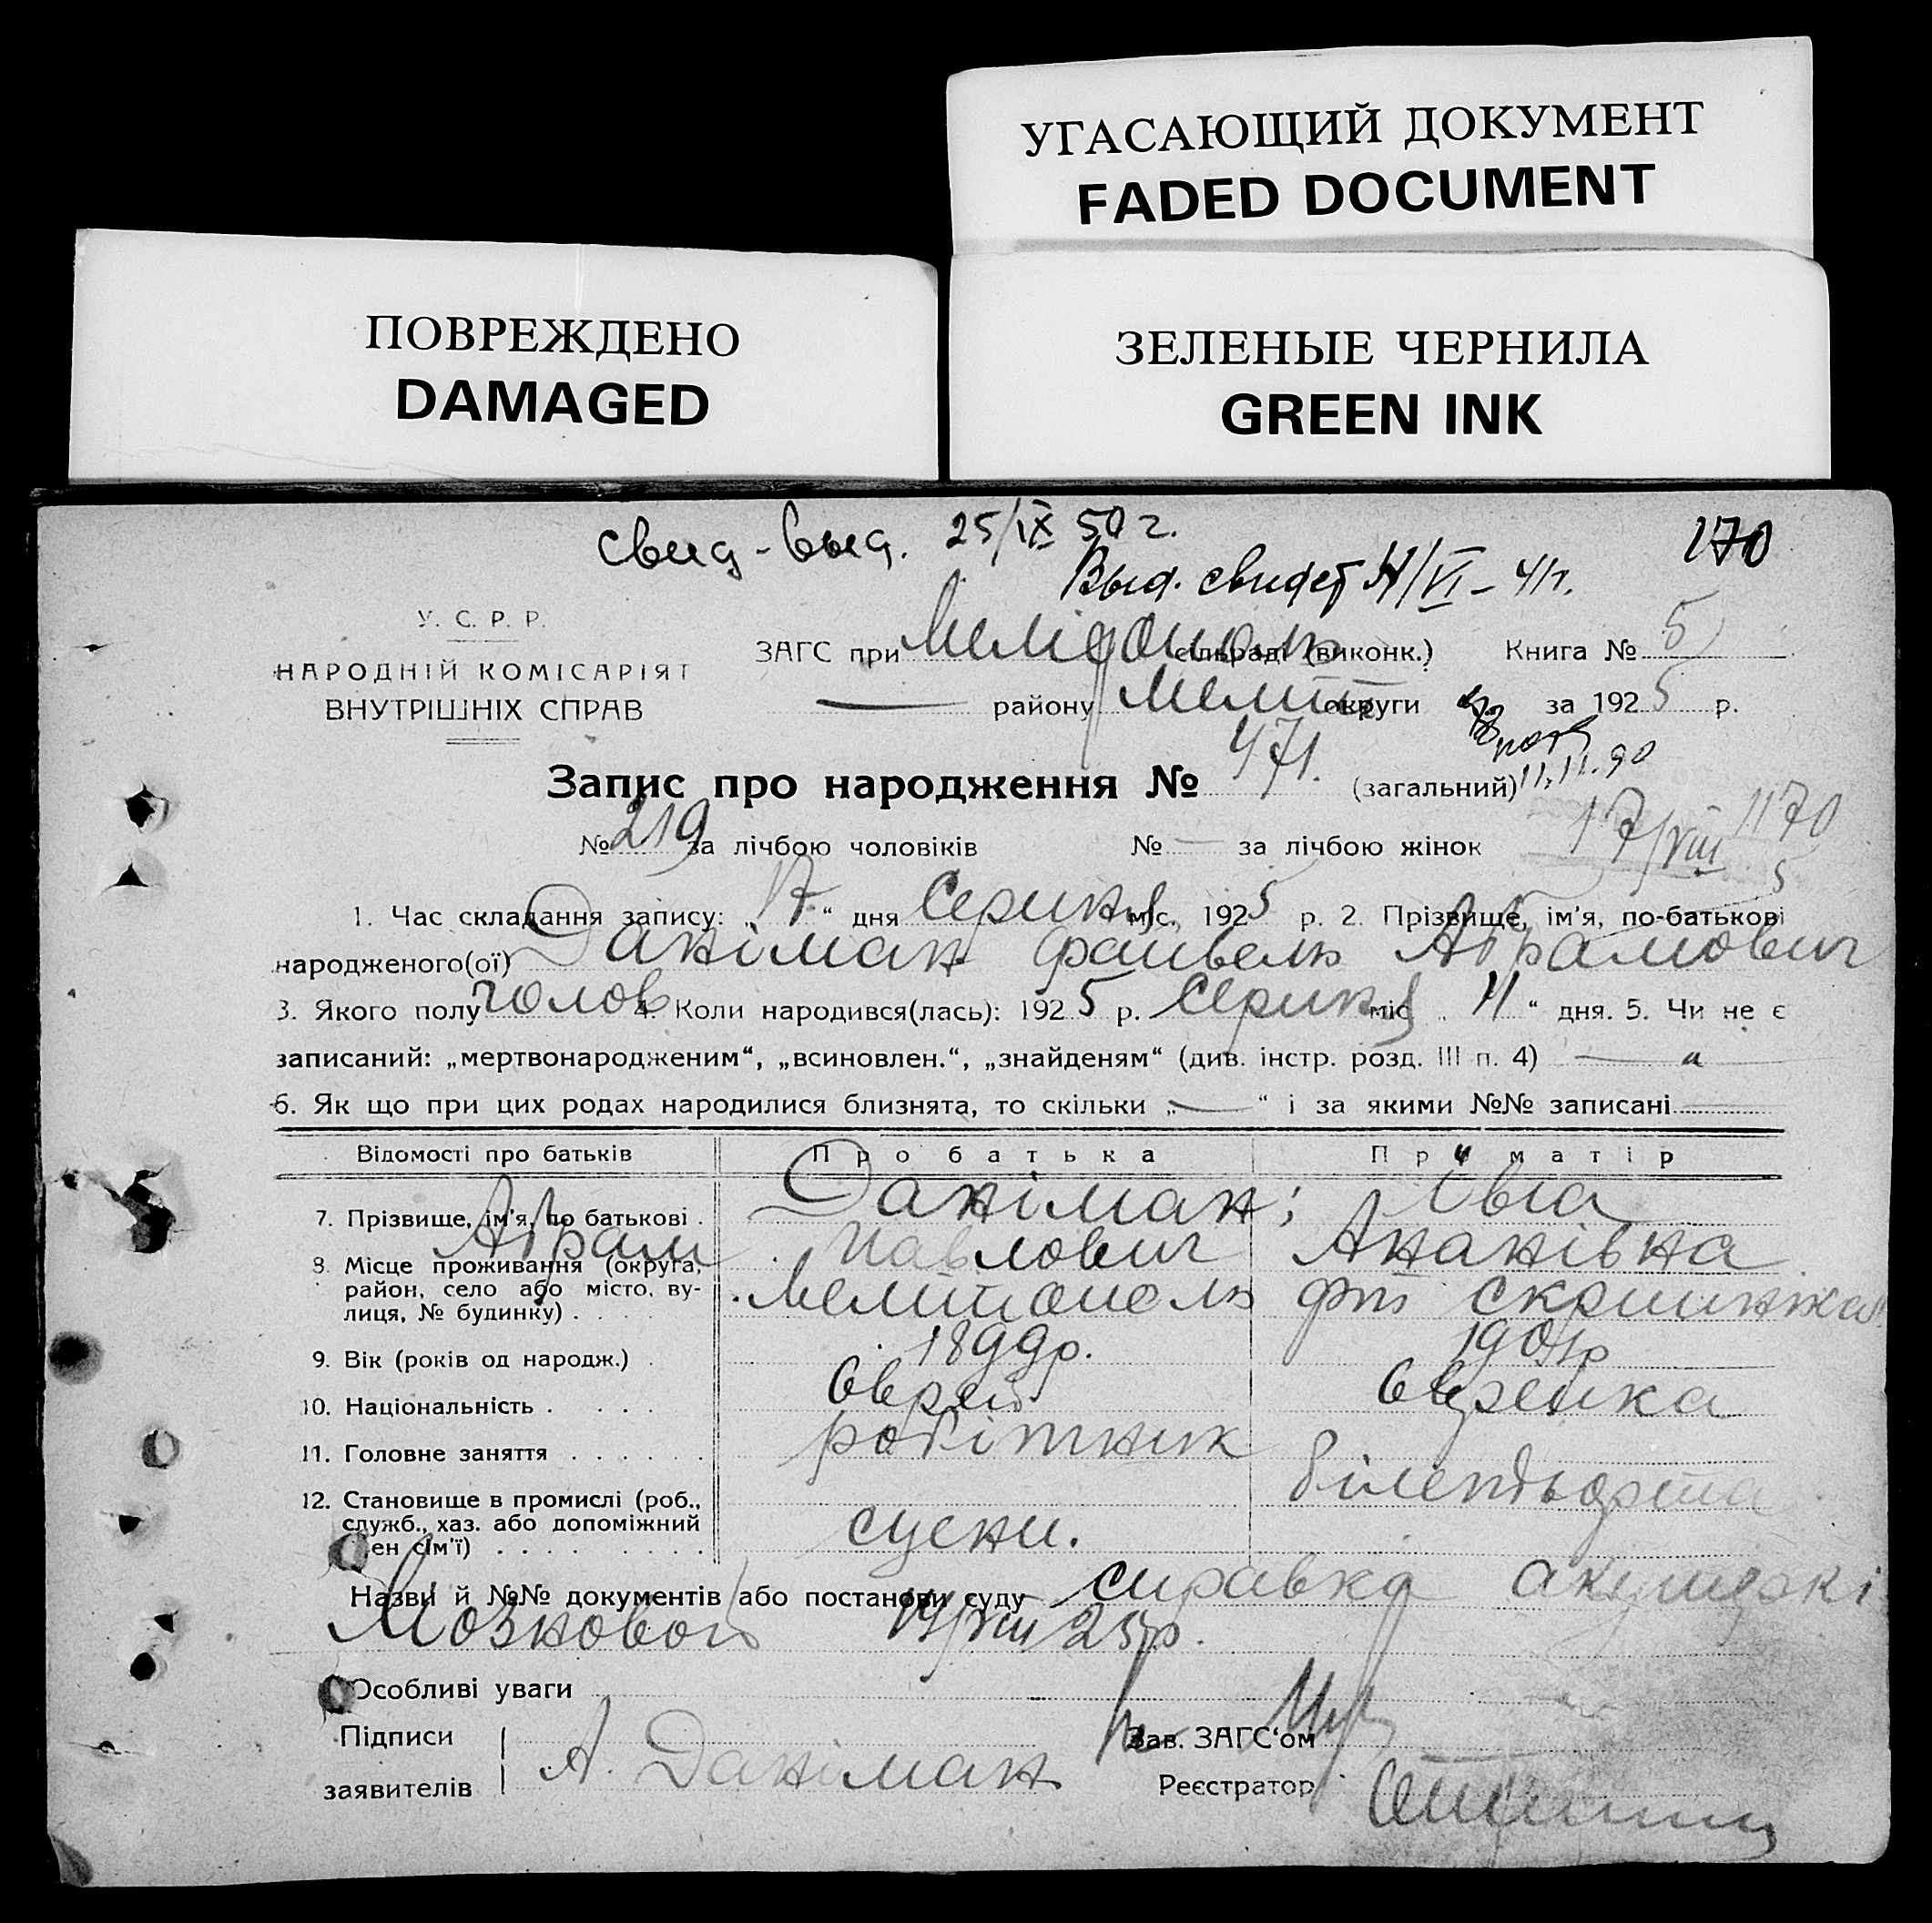 УГАСАЮЩИЙ ДОКУМЕНТ
FADED DOCUMENT
ПОВРЕЖДЕНО
DAMAGED
ЗЕЛЕНЫЕ ЧЕРНИЛА
GREEN INK
свид-выд. 25/IX 50 г.
170
Выд. свидет /VI - 41г.
У. С. Р. Р.
НАРОДНІЙ КОМІСАРІЯТ
ВНУТРІШНІХ СПРАВ
ЗАГС при Мелітополь сільраді (виконк.) Книга № 5
— району Меліт округи за 1925 р.
11.11.90
Запис про народження № 471. (загальний)
№ 219 за лічбою чоловіків № — за лічбою жінок
17/VIII 1170
5
1. Час складання запису: „17“ дня Серпня міс. 1925 р. 2. Прізвище, ім'я, по-батькові
народженого(ої) Даніман Файвель Абрамович
3. Якого полу чолов 4. Коли народився(лась): 1925 р. Серпня міс. „11“ дня. 5. Чи не є
записаний: „мертвонародженим“, „всиновлен.“, „знайденям“ (див. інстр. розд. III п. 4) —
6. Як що при цих родах народилися близнята, то скільки „—“ і за якими №№ записані
Відомості про батьків Про батька Про матір
7. Прізвище, ім'я, по батькові . Даніман; Єва
Абрам Павлович Ананівна
8. Місце проживання (округа,
район, село або місто, ву-
лиця, № будинку) . . . . Мелітополь
9. Вік (років од народж.) . 1899р. 1901р
10. Національність . . . . Єврей Єврейка
11. Головне заняття . . . . . . робітник
12. Становище в промислі (роб.,
служб., хаз. або допоміжний
ен сім'ї) . . . . . . . . сцени. білетьорша
Назви й №№ документів або постанови суду справка акушеркі
Мозновой 14/VIII 25р.
Особливі уваги
Підписи
заявителів А. Даніман
Зав. ЗАГС'ом
Реєстратор